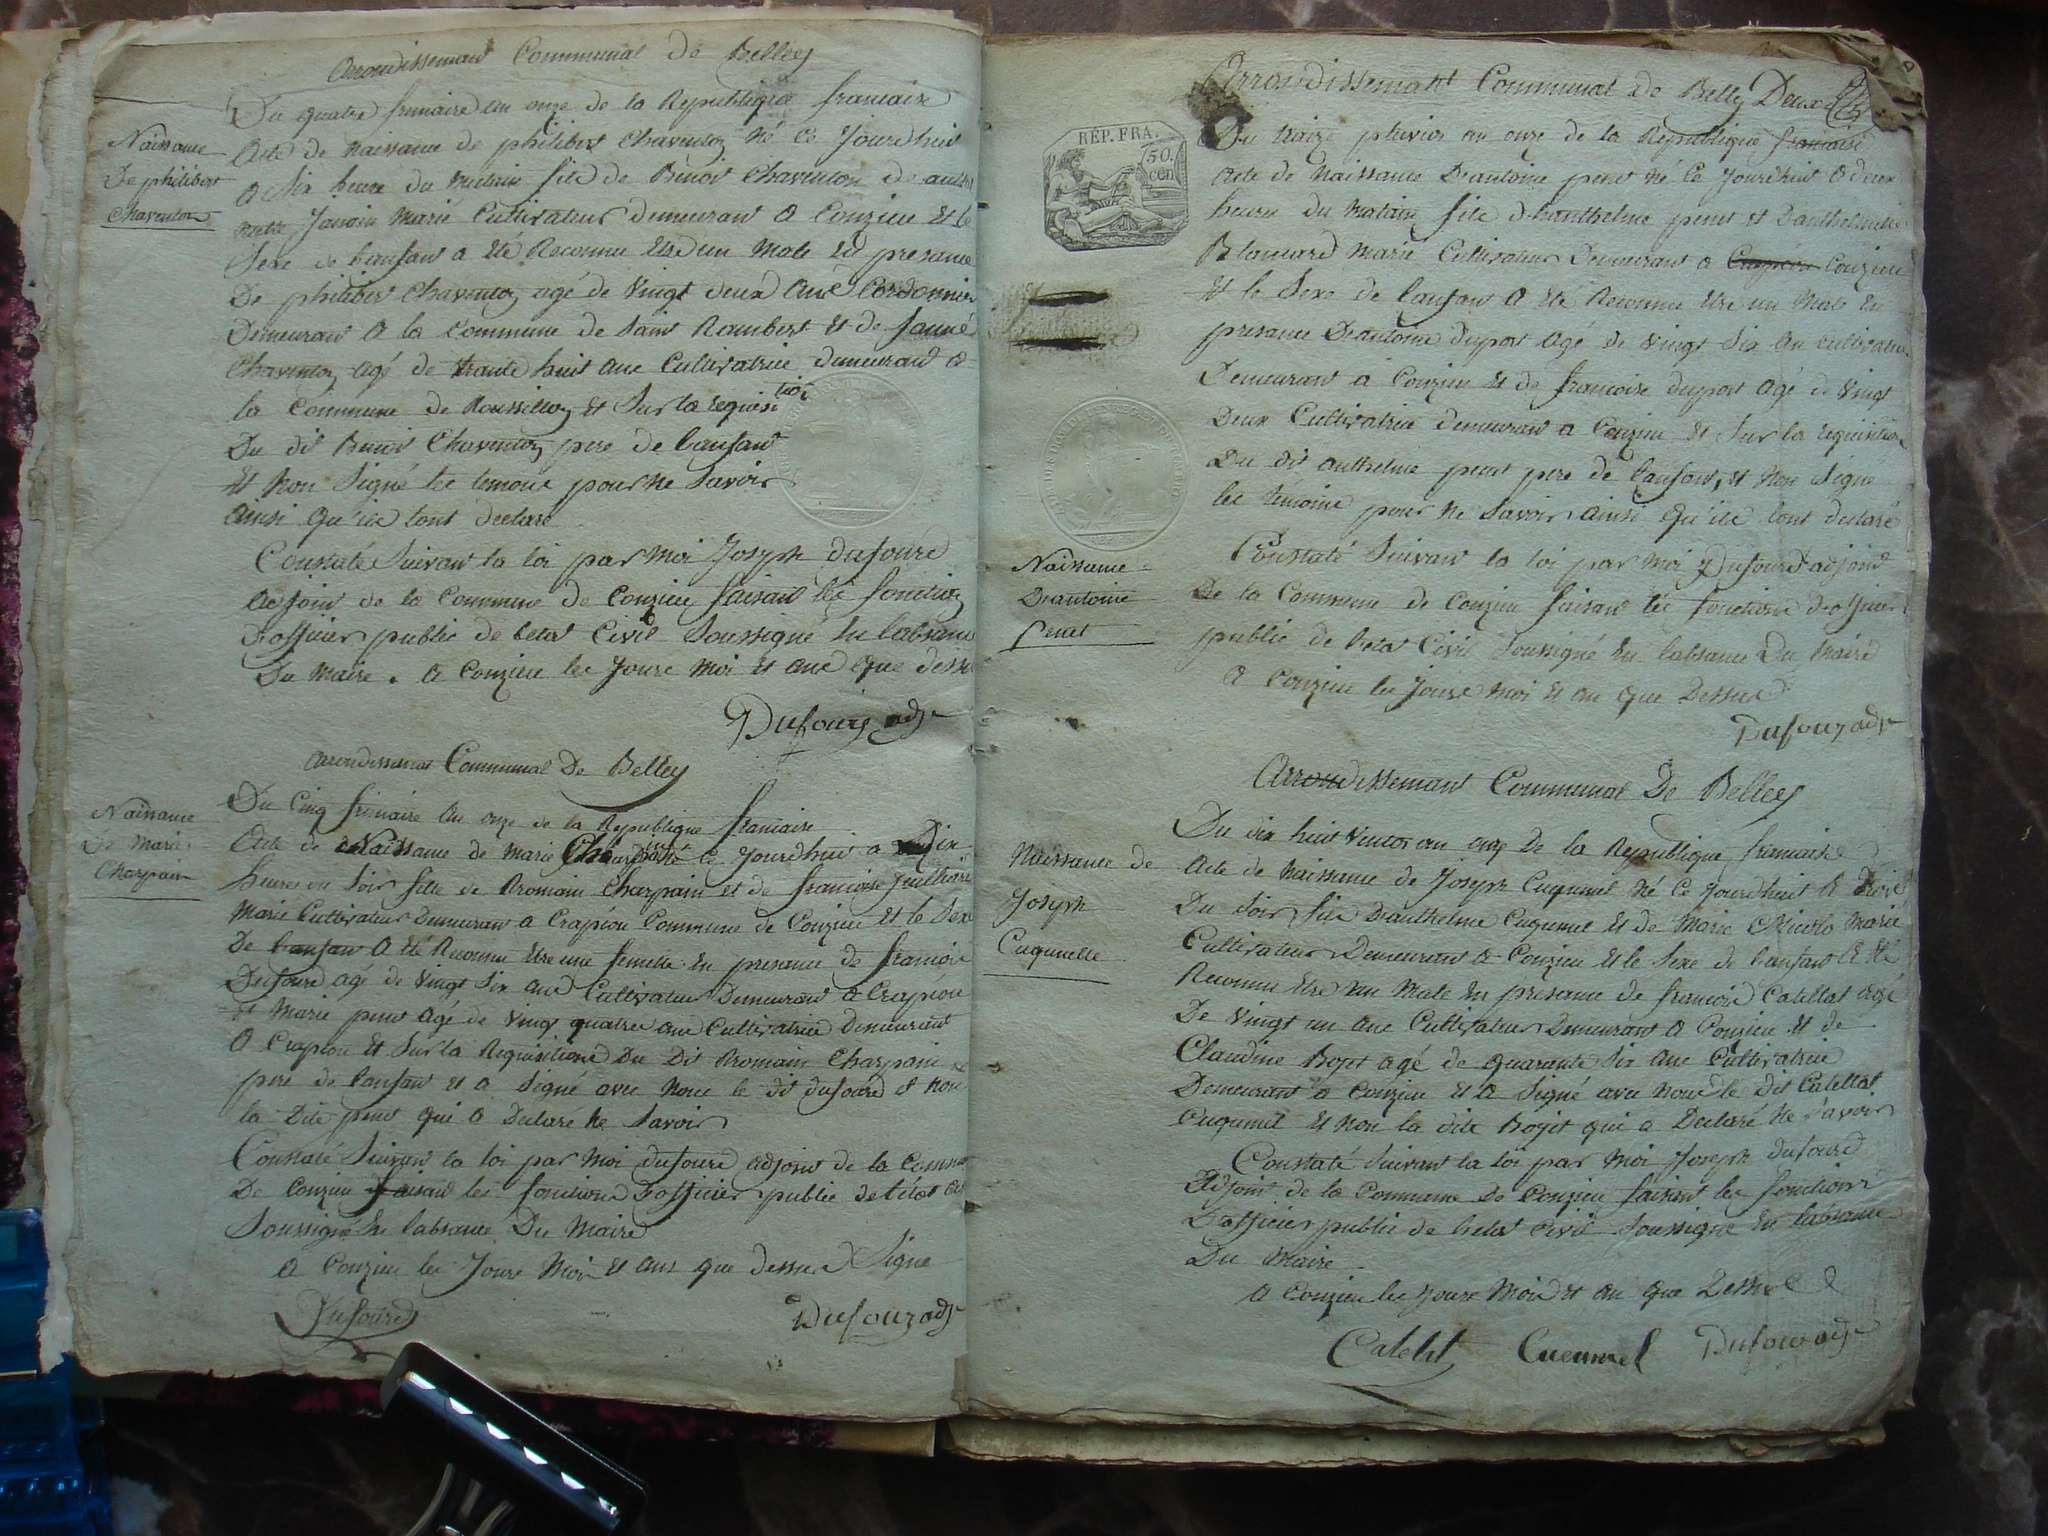 Arondissemant Communal de Belley
Du quatre frimaire an onze de la Republique francaise
Naissance
De philibert
Chaventon
Acte de naissance de philibert Chaventon Né Ce Jourdhuit
a Six heure du matain fils de Benoit Chaventon de
Janain Marié Cultivateur Demeurant a Conzieu Et le
Sexe de lanfant a Eté Reconnu Etre un Male En presance
De philibert Chaventon agé de Vingt deux ans Cordonnier
Demeurant a la Commune de Saint Rambert Et de
Chaventon agé de trante huit ans Cultivatrice demeurant a
la Commune de Roussillon Et Sur la requisi
tion
Du dit Benoit Chaventon pere de lanfant
Et Non Signé les temoins pour ne Savoir
ainsi qu'ils lont declaré
Constaté Suivant la loi par Moi Joseph Dufour
adjoint de la Commune de Conzieu faisant les fonction
dofficier public de letat Civil Soussigné En labsance
Du Maire. a Conzieu les Jours Moi Et ans que dessu
Dufour adj
arrondissemant Communal De Belley
Naissance
De Marie
Charpain
Du Cinq frimaire an onze de la Republique francaise
Acte de Naissance de Marie Ce Jourdhuit a Dix
heures du Soir fille de Romain Charpain et de francoise
Marié Cultivateur Demeurant a Crapéou Commune de Conzieu Et le Sexe
De lanfant a Eté Reconnu Etre une femelle En presance de francois
Dufour agé de Vingt Six ans Cultivateur Demeurant a Crapéou
Et Marie penet agé de Vingt quatre ans Cultivatrice Demeurant
a Crapéou Et Sur la Requisitions Du Dit Romain Charpain
pere de lanfant Et a Signé avec Nous le dit dufour Et Non
la Dite penet qui a Declaré Ne Savoir
Constaté Suivant la loi par Moi dufour adjoint de la Commu
De Conzieu faisant les fonctions dofficier public de létat
Soussigné En labsance Du Maire
a Conzieu les Jours Moi Et ans que dessu Signé
Dufour
Dufour adj
Arrondissemant Communal de Belley Deux
RÉP. FRA.
50.
cen
Du traize pluvios an onze de la Republique francaise
Acte de Naissance Dantoine penet Né Ce Jourdhuit a deux
heures du Matain fils danthelme penet Et
Blancard Marié Cultivateur Demeurant a Conzieu
Et le Sexe de lanfant a Eté Reconnu Etre un Male En
presance Dantoine dupont agé de Vingt Six an Cultivateur
Demeurant a Conzieu Et de francoise dupont agé de Vingt
Deux Cultivatrice demeurant a Conzieu Et Sur la requisition
Du dit anthelme penet pere de lanfant, Et Non Signé
les temoins pour ne Savoir ainsi qu'ils lont declaré
Naissance
Dantoine
Penet
Constaté Suivant la loi par Moi Dufour adjoint
De la Commune de Conzieu faisant les fonction dofficier
public de letat Civil Soussigné En labsance Du Maire
a Conzieu les Jours Moi Et an que Dessus
Dufour adj
Arrondissemant Communal De Belley
Naissance de
Joseph
Cuqumelle
Du dix huit Ventos an onze De la Republique francaise
Acte de Naissance de Joseph Cuqumel Né Ce Jourdhuit a
Du Soir fils Danthelme Cuqumel Et de Marie Micolo Marié
Cultivateur Demeurant a Conzieu Et le Sexe de lanfant a Eté
Reconnu Etre un Male En presance de francois Catellat agé
De Vingt un ans Cultivateur Demeurant a Conzieu Et de
Claudine Bojet agé de quarante Six ans Cultivatrice
Demeurant a Conzieu Et a Signé avec Nous le dit Catellat
Cuqumel Et Non la dite Bojet qui a Declaré Ne Savoir
Constaté Suivant la loi par Moi Joseph Dufour
Adjoint de la Commune De Conzieu faisant les fonctions
Dofficier public de letat Civil Soussigné En labsance
Du Maire
a Conzieu les Jours Mois Et an que Dessus
Catelat Cucumel Dufour adj